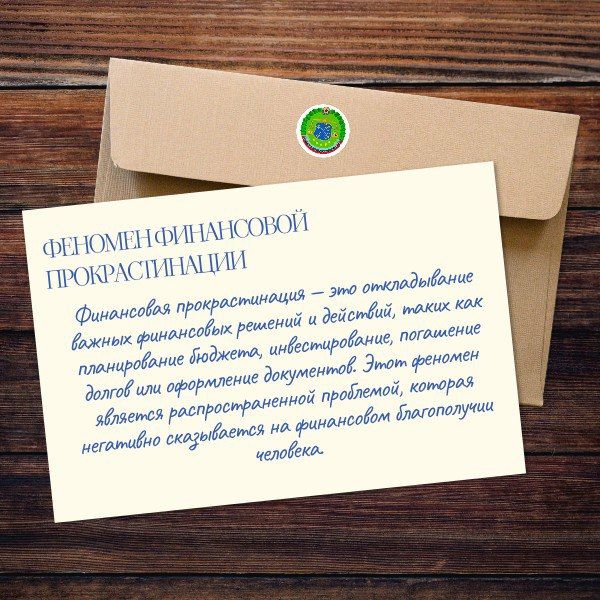 ФЕНОМЕН ФИНАНСОВОЙ
ПРОКРАСТИНАЦИИ
Финансовая прокрастинация — это откладывание
важных финансовых решений и действий, таких как
планирование бюджета, инвестирование, погашение
долгов или оформление документов. Этот феномен
является распространенной проблемой, которая
негативно сказывается на финансовом благополучии
человека.